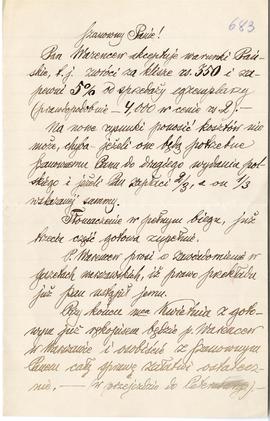 683
Szanowny Panie!
Pan Warencew akceptuje warunki Pań-
skie, t.j. zwróci za klisze rs. 350 i za-
pewni 5% od sprzedaży egzemplarzy
(prawdopodobnie – 4,000 w cenie rs. 2).–
Na nowe rysunki ponosić kosztów nie
może, chyba jeżeli one będą potrzebne
Szanownemu Panu do drugiego wydania pol-
skiego i jeżeli Pan zapłaci 2/3, a on 1/3
wskazanej summy.
Tłomaczenie w pełnym biegu, już
trzecia część gotowa zupełnie.
P. Warencew prosi o zawiadomienie w
gazetach warszawskich, iż prawo przekładu
już Pan ustąpił jemu.
Przy końcu mca Kwietnia z goto-
wym już rękopisem będzie p. Warencew
w Warszawie i osobiście z Szanownym
Panem całą sprawę załatwi ostatecz-
nie. — (w przejeździe do